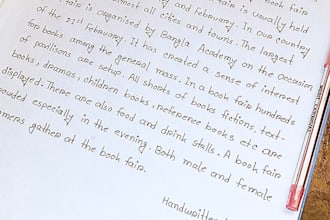 book fair
fair is usually held
almost all cities and towns. The largest
and February. In our country
fair is organised by Bangla Academy on the occasion
of the 21st February. It has created a sense of interest
for books among the general mass. In a book fair hundreds
of pavilions are setup. All shorts of books fictions, text-
books, dramas, children books, reference books etc are
displayed. There are also food and drink stalls. A book fair
couded especially in the evening. Both male and female
mers gather at the book fair.
Handwritten